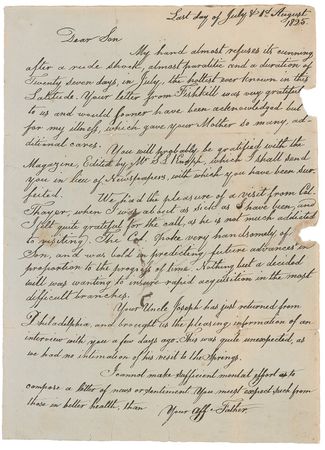 Last day of July & 1st August
1825.
Dear Son
My hand almost refuses its cunning
after a rude shock, almost paralitic and a duration of
Twenty seven days, in July, the hottest ever known in this
Latitude. Your letter from Fishkill was very grateful
to us and would sooner have been acknowledged but
for my illness, which gave your Mother so many ad-
ditional cares. You will probably be gratified with the
Magazine, Edited by Mr. S. L. Knapp, which I shall send
you in lieu of Newspapers with which you have been sur-
feited. We had the pleasure of a visit from Col.
Thayer, when I was about as sick as I have been, and
I felt quite grateful for the call, as he is not much addicted
to visiting. The Col. spoke very handsomely of
Son, and was bold in predicting future advances in
proportion to the progress of time. Nothing but a decided
will was wanting to insure rapid acquisition in the most
difficult branches.
Your Uncle Joseph has just returned from
Philadelphia, and brought us the pleasing information of an
interview with you a few days ago. This was quite unexpected, as
we had no intimation of his visit to the Springs.
I cannot make sufficient mental effort as to
compose a letter of news or sentiment. You must expect such from
those in better health, than Your Aff. Father.